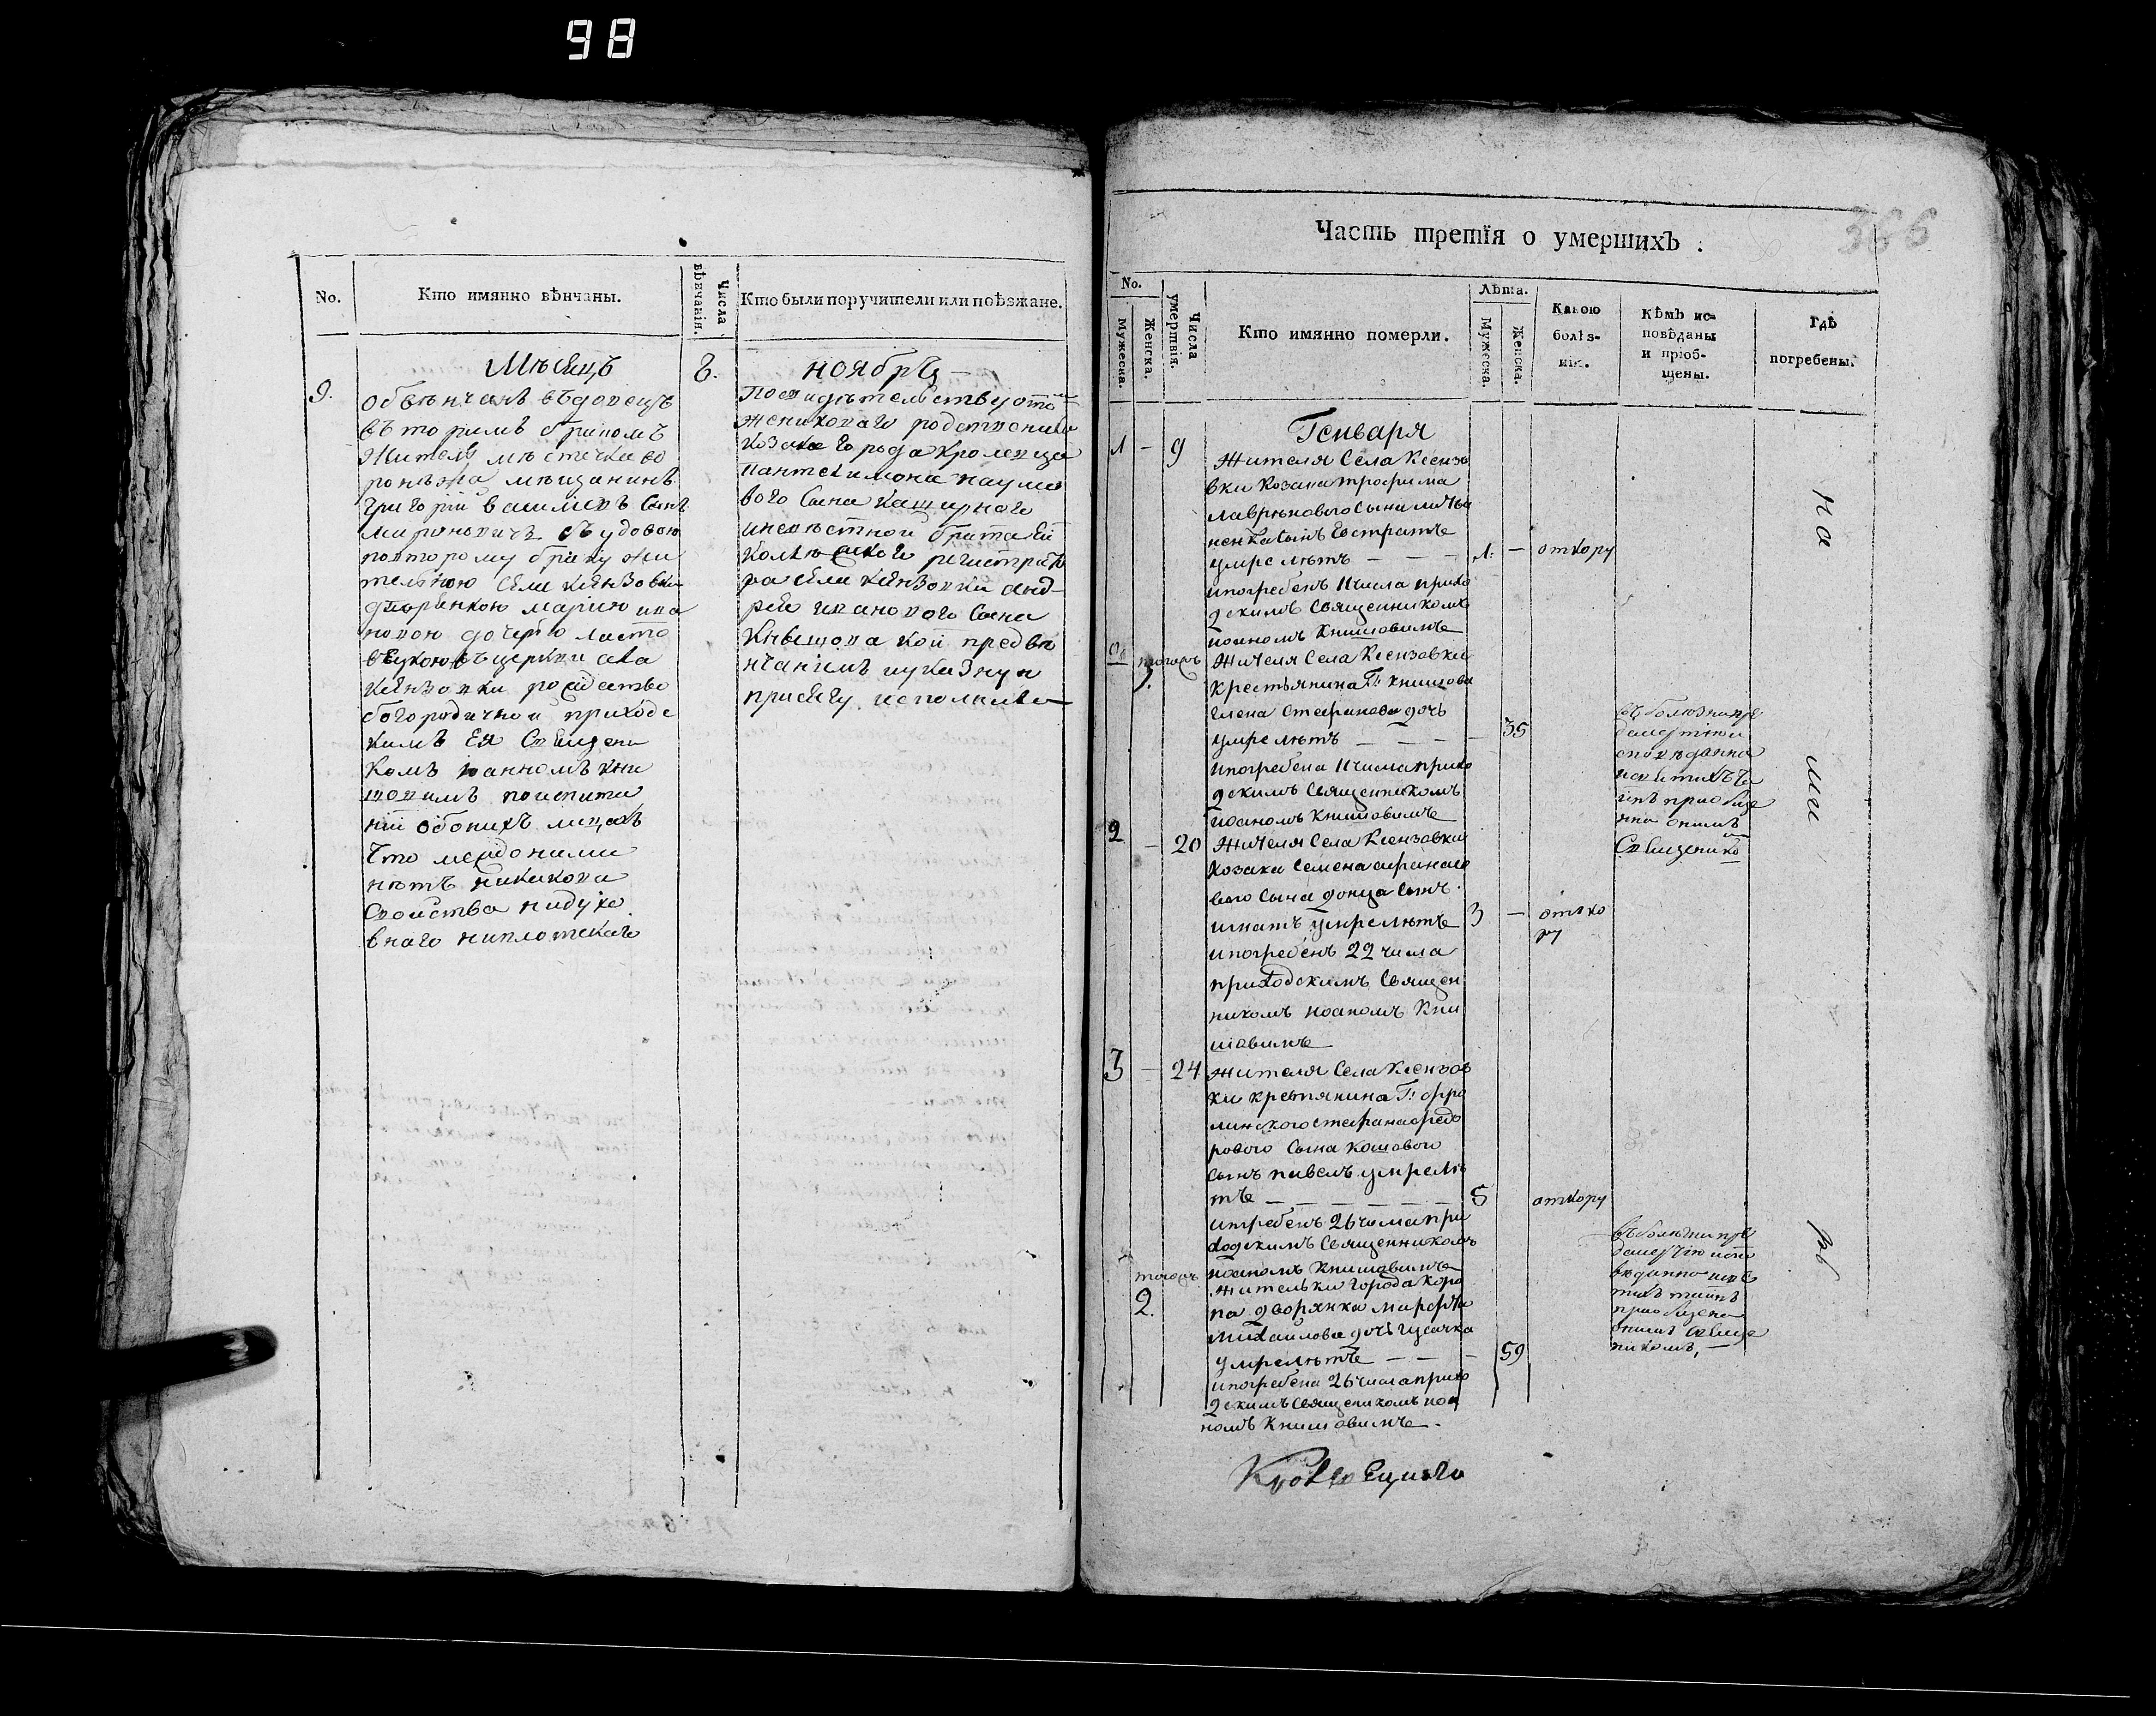 98
No.
Кто имянно вѣнчаны.
Числа вѣнчанія.
Кто были поручители или поѣзжане.
Мѣсяцъ
ноябрь
9.
обвѣнчанъ вдовецъ
въторимъ бракомъ
житель мѣстечка во
ронѣжа мѣщанинъ
григорій василіевъ Синъ
Мироновичъ съ удовою
повторому браку жи
тельною села Клѣнзовки
марію ива
новою дочерью
въ церкви села
рождество
богородичной приходс
кимъ Ея Священи
комъ иоанномъ кни
шовимъ поиспита
ніи обоихъ лицахъ
Что между ними
нѣтъ никакова
Свойства ниду хо
внаго ниплотскаго
Посвидѣтелству отъ
жениховаго родственика
Козака города Кролевца
Пантелимона наумо
вого Сина
иневѣстной брата Ей
колѣжского регистрато
ра села андрей
рея ивановаго Сина
Книшова кой предвѣ
нчаніемъ и указную
присягу исполнили
366
Часть третія о умершихъ.
No.
Мужеска.
Женска.
Числа умертвія.
Кто имянно померли.
Лѣта.
Мужеска.
Женска.
Какою болѣзнію.
Кѣмъ исповѣданы и пріобщены.
Гдѣ погребены.
Генваря
1 — 9
жителя Села Клензо
вки Козака трофима
лаврѣнового Сына
ненка Сынъ Евстратъ
умре лѣтъ — — — 1. — откору
ипогребенъ 11 числа прихо
дскимъ Священникомъ
иоаномъ Книшовимъ
тогожъ
1.
жителя Села Клензовки
крестьянина Г: книшова
елена Стефанова дочь
умре лѣтъ — — — 35
ипогребена 11 числа прихо
дскимъ Священникомъ
иоаномъ Книшовимъ
въ болѣзни пре
дъ смертію и
споведанна
исвятихъ та
инъ приобще
нна онимъ
Священико
2 — 20
жителя Села Клензовки
Козака Семена афанасо
вого Сына донца Сынъ
игнатъ умре лѣтъ 3 — отъ ко
ру
ипогребенъ 22 числа
приходскимъ Священ
никомъ иоаномъ Кни
шовимъ
3 — 24
жителя Села Клензов
ки крестянина Г: фро
линского стефана федо
рового Сына кошового
сынъ павелъ умре лѣ
тъ — — — — 5 откору
ипогребенъ 26 числа при
ходскимъ Священникомъ
иоаномъ Книшовимъ
тогожъ
2.
жителки города Коро
па дворянка марфа
михаилова дочь гусачка
умре лѣтъ — — — 59
ипогребена 26 числа прихо
дскимъ Священикомъ иоа
номъ Книшовимъ.
въ болѣзни пре
дсмертію испо
веданна исвя
тихъ таинъ
приобщена
онимъ Свяще
никомъ, —
на